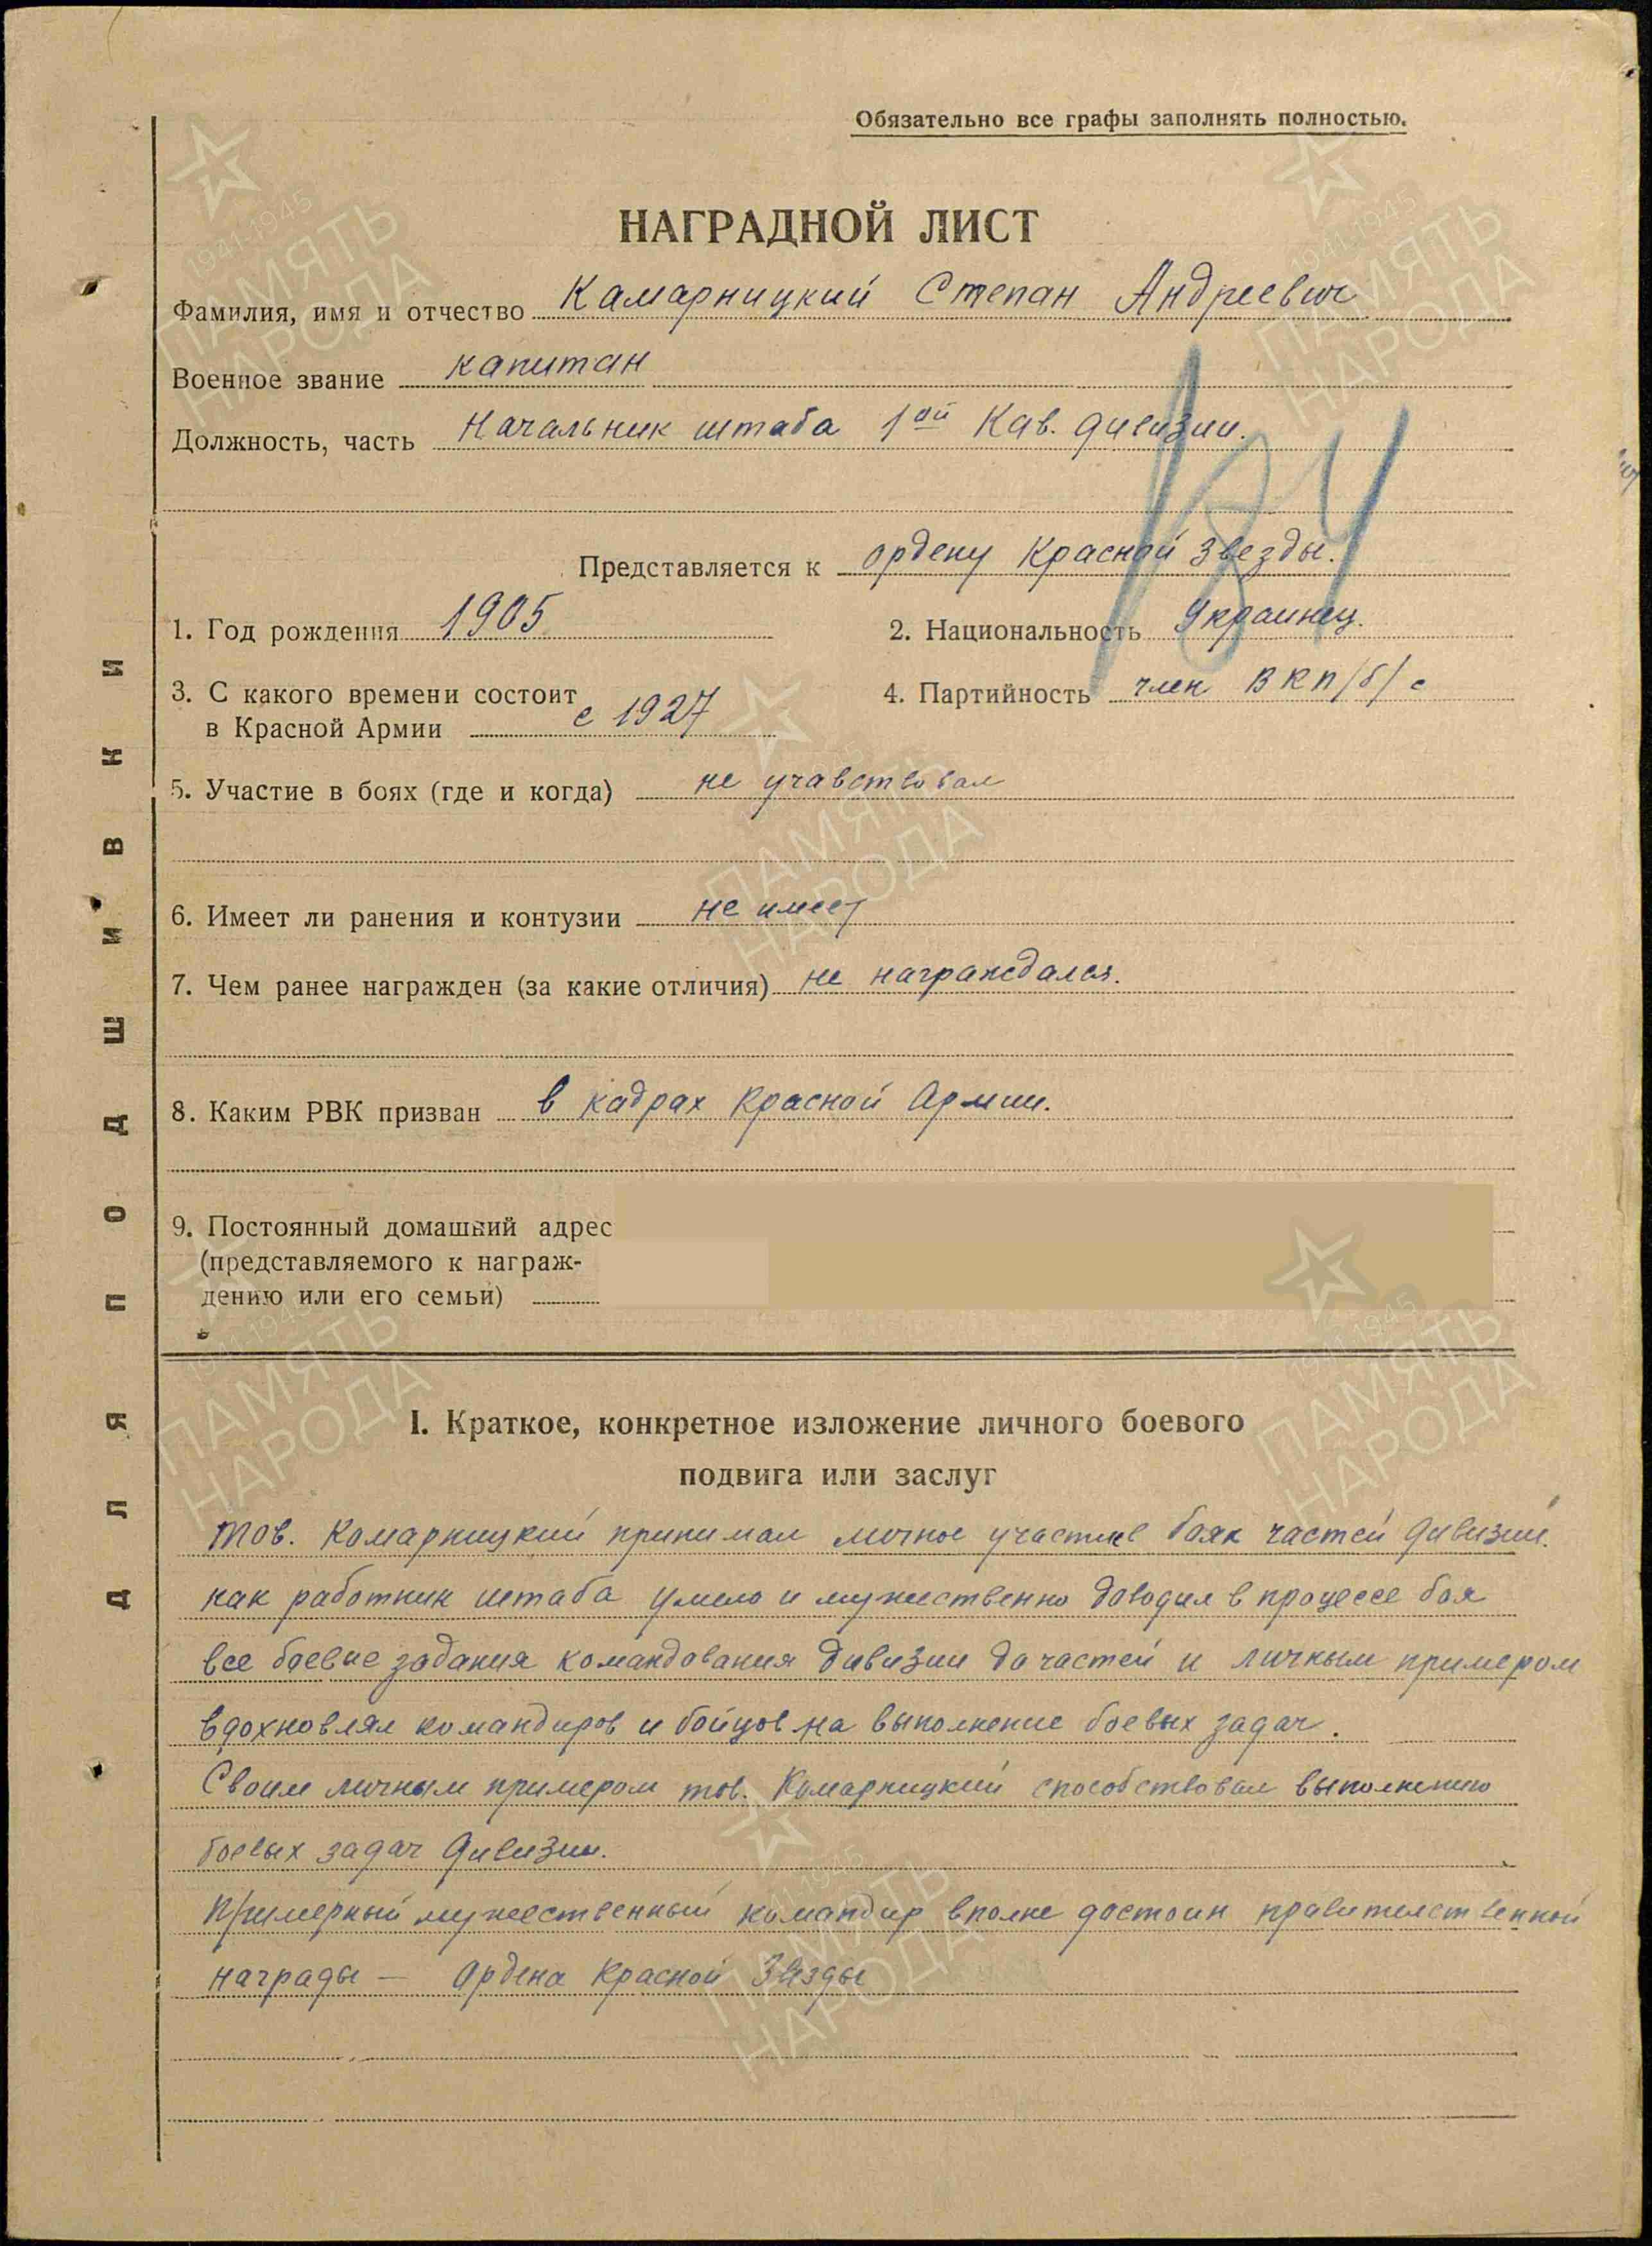 Обязательно все графы заполнять полностью.
НАГРАДНОЙ ЛИСТ
Фамилия, имя и отчество Камарницкий Степан Андреевич
Военное звание капитан
Должность, часть Начальник штаба 1ой Кав. дивизии.
Представляется к ордену Красной Звезды.
1. Год рождения 1905
2. Национальность Украинец.
3. С какого времени состоит
в Красной Армии с 1927
4. Партийность член ВКП/б/ с
5. Участие в боях (где и когда) не учавствовал
6. Имеет ли ранения и контузии не имеет
7. Чем ранее награжден (за какие отличия) не награждался.
8. Каким РВК призван в кадрах Красной Армии.
9. Постоянный домашний адрес
(представляемого к награж-
дению или его семьи)
I. Краткое, конкретное изложение личного боевого
подвига или заслуг
Тов. Комарницкий принимал личное участие в боях частей дивизии.
как работник штаба умело и мужественно доводил в процессе боя
все боевые задания командования дивизии до частей и личным примером
вдохновлял командиров и бойцов на выполнение боевых задач.
Своим личным примером тов. Комарницкий способствовал выполнению
боевых задач дивизии.
Примерный мужественный командир вполне достоин правителственной
награды — Ордена Красной Звезды
ДЛЯ ПОДШИВКИ
1941-1945
ПАМЯТЬ
НАРОДА
1941-1945
ПАМЯТЬ
НАРОДА
1941-1945
ПАМЯТЬ
НАРОДА
1941-1945
ПАМЯТЬ
НАРОДА
1941-1945
ПАМЯТЬ
НАРОДА
1941-1945
ПАМЯТЬ
НАРОДА